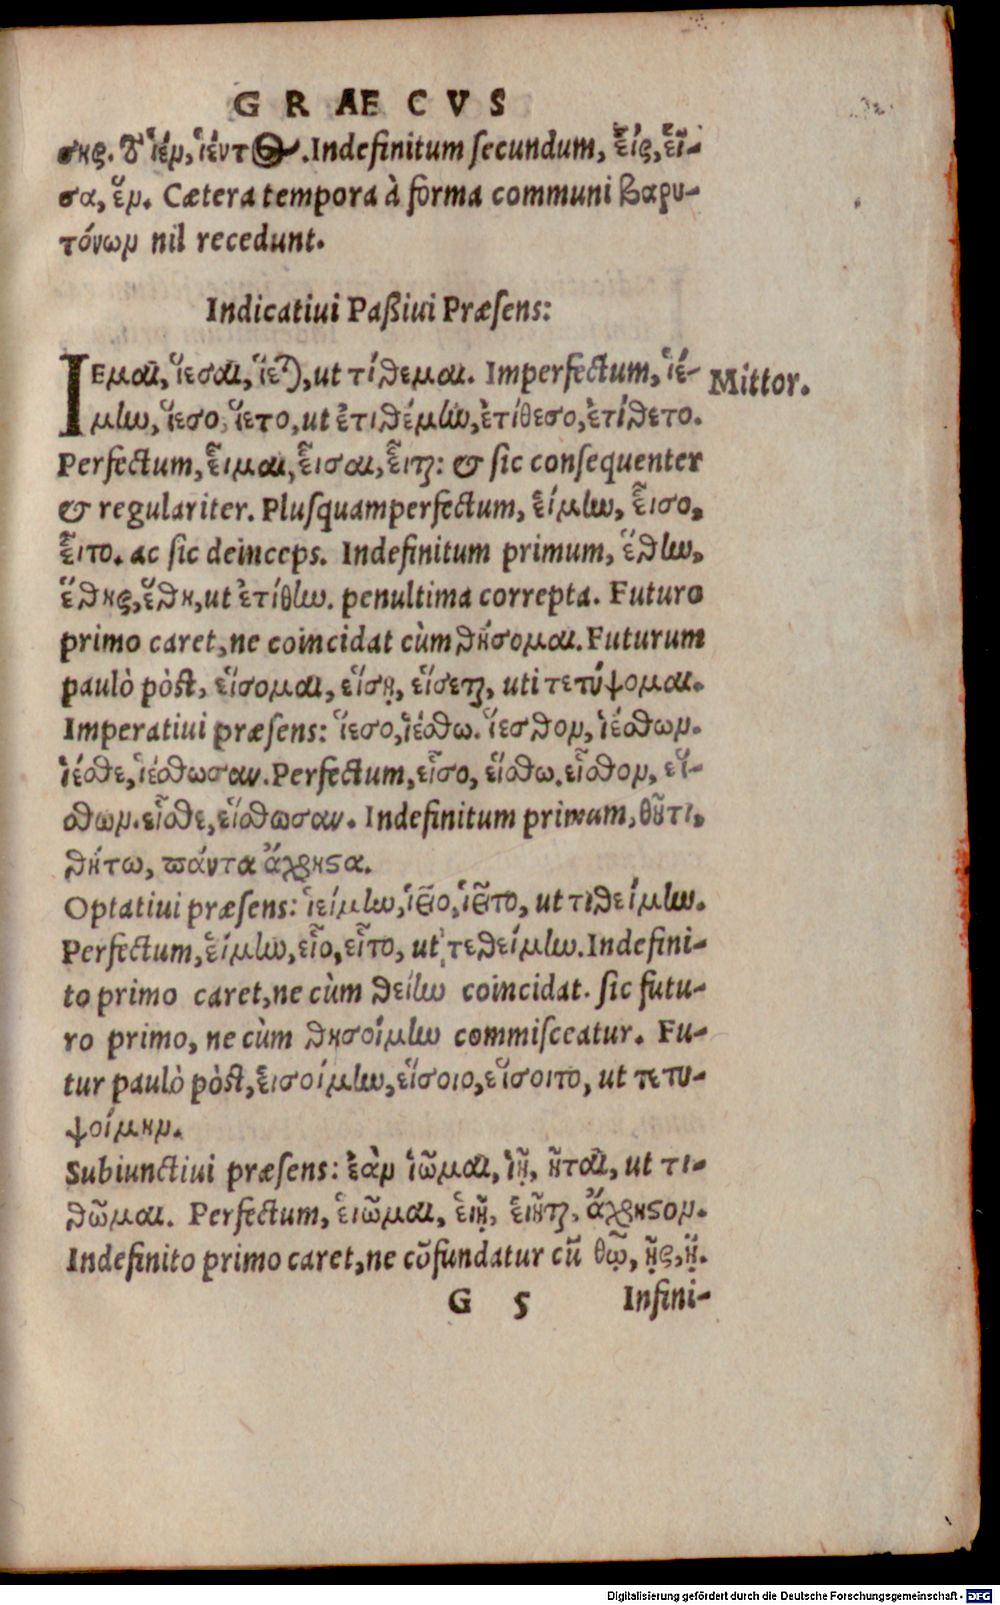 GRÆCVS
σης. τὸ ἱέν, ἱέντος. Indefinitum ſecundum, εἷς, εἷ-
σα, ἕν. Cætera tempora à forma communi βαρυ-
τόνων nil recedunt.
Indicatiui Paßiui Præſens:
ΙΕμαι, ἵεσαι, ἵεται, ut τίθεμαι. Imperfectum, ἱέ-
Mittor.
μην, ἵεσο, ἵετο, ut ἐτιθέμην, ἐτίθεσο, ἐτίθετο.
Perfectum, εἷμαι, εἷσαι, εἷται: & ſic conſequenter
& regulariter. Pluſquamperfectum, εἵμην, εἷσο,
εἷτο. ac ſic deinceps. Indefinitum primum, ἕθην,
ἕθης, ἕθη, ut ἐτίθην. penultima correpta. Futuro
primo caret, ne coincidat cùm θήσομαι. Futurum
paulò pòst, εἵσομαι, εἵσῃ, εἵσεται, uti τετύψομαι.
Imperatiui præſens: ἵεσο, ἱέσθω. ἵεσθον, ἱέσθων.
ἱέσθε, ἱέσθωσαν. Perfectum, εἷσο, εἵσθω. εἷσθον, εἵ-
σθων. εἷσθε, εἵσθωσαν. Indefinitum primum, θῦτι,
θήτω, πάντα ἄχρηστα.
Optatiui præſens: ἱείμην, ἱεῖο, ἱεῖτο, ut τιθείμην.
Perfectum, εἵμην, εἷο, εἷτο, ut τεθείμην. Indefini-
to primo caret, ne cùm θείην coincidat. ſic futu-
ro primo, ne cùm θησοίμην commiſceatur. Fu-
tur paulò pòst, εἱσοίμην, εἵσοιο, εἵσοιτο, ut τετυ-
ψοίμην.
Subiunctiui præſens: ἐὰν ἱῶμαι, ἱῇ, ῆται, ut τι-
θῶμαι. Perfectum, ἑιῶμαι, ἑιῇ, ἑιῆται, ἄχρηστον.
Indefinito primo caret, ne cõfundatur cũ θῶ, ῇς, ῇ.
G 5
Infini-
Digitalisierung gefördert durch die Deutsche Forschungsgemeinschaft - DFG